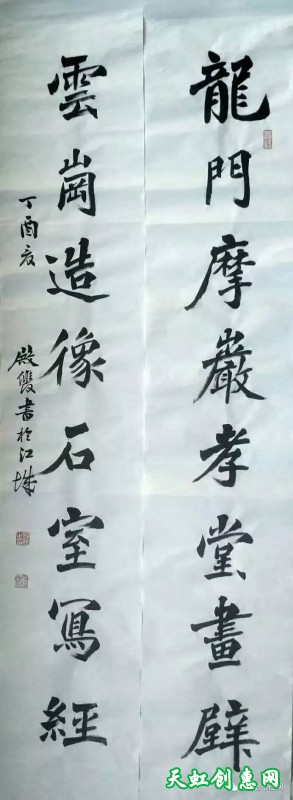 龍門摩巖孝堂畫壁
雲崗造像石室寫經
丁酉夏
殿雙書於江城
天虹创惠网